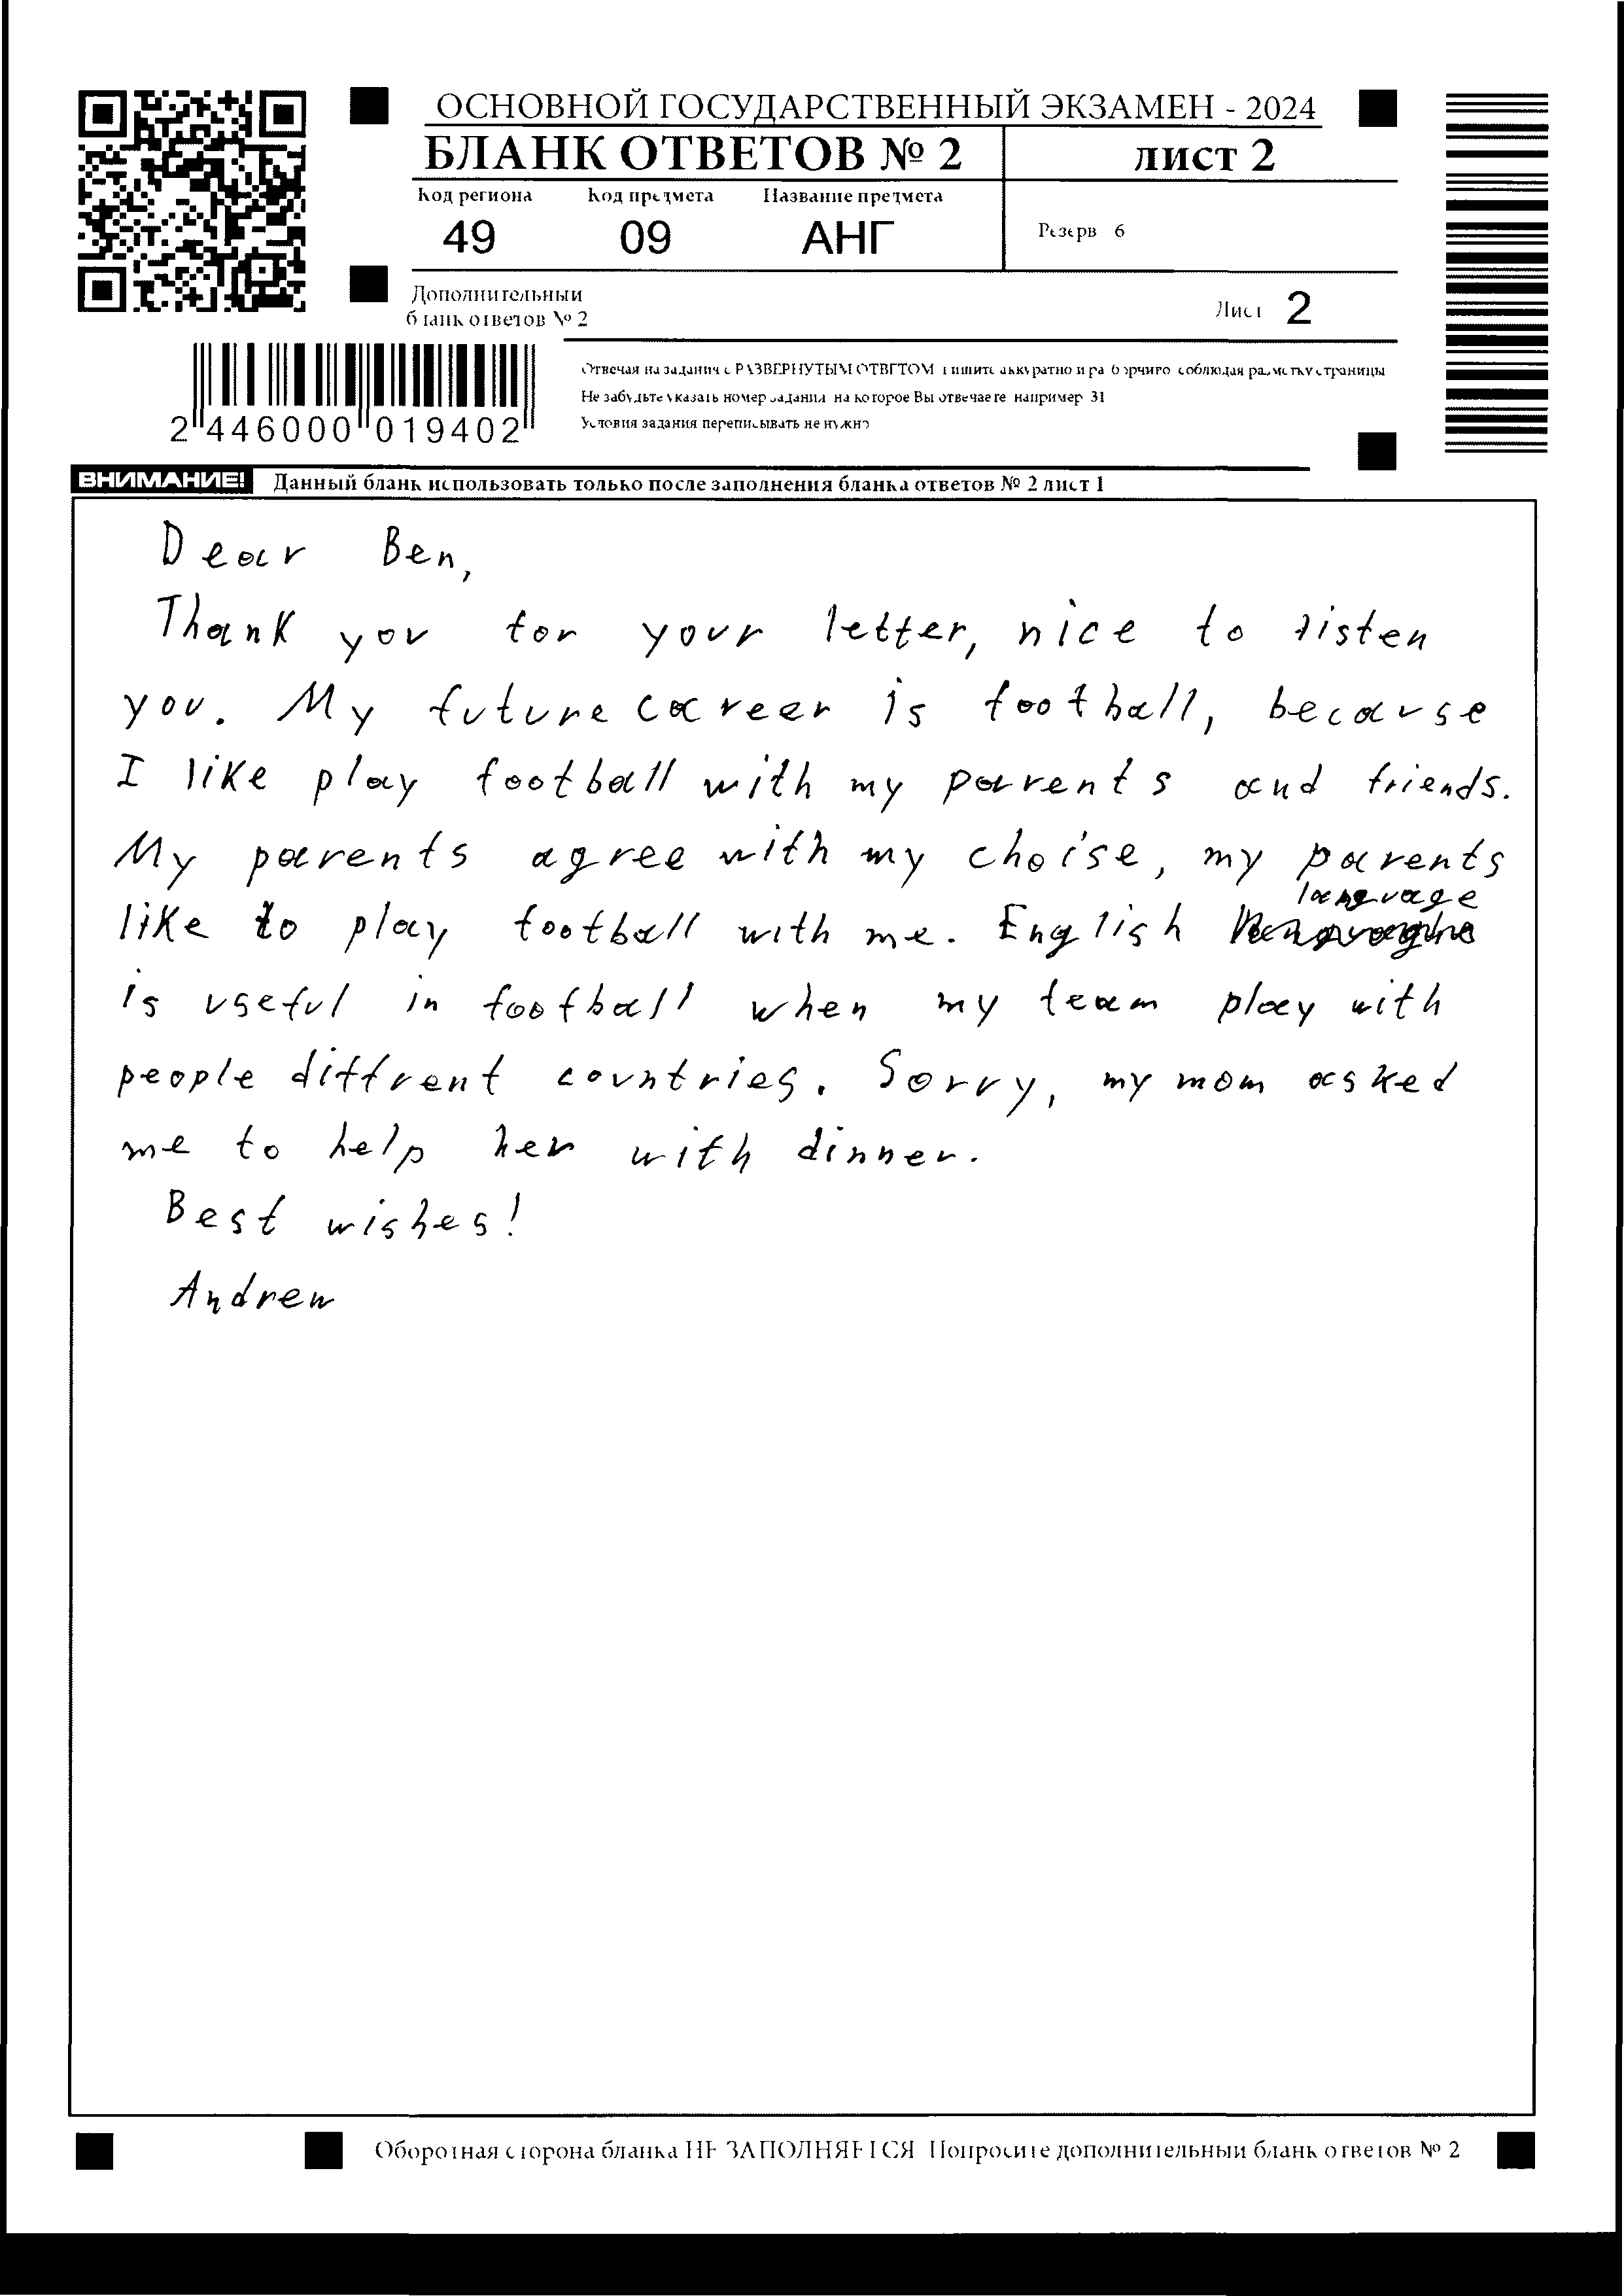 ОСНОВНОЙ ГОСУДАРСТВЕННЫЙ ЭКЗАМЕН - 2024
БЛАНК ОТВЕТОВ № 2 лист 2
Код региона Код предмета Название предмета
49 09 АНГ Резерв 6
Дополнительный
бланк ответов № 2
Лист 2
Отвечая на задания с РАЗВЕРНУТЫМ ОТВЕТОМ пишите аккуратно и разборчиво соблюдая разметку страницы
Не забудьте указать номер задания на которое Вы отвечаете например 31
Условия задания переписывать не нужно
2 446000 019402
ВНИМАНИЕ! Данный бланк использовать только после заполнения бланка ответов № 2 лист 1
Dear Ben,
Thank you for your letter, nice to listen
you. My future career is football, because
I like play football with my parents and friends.
My parents agree with my choise, my parents
like to play football with me. English language
is useful in football when my team play with
people diffrent countries. Sorry, my mom asked
me to help her with dinner.
Best wishes!
Andrew
Оборотная сторона бланка НЕ ЗАПОЛНЯЕТСЯ Попросите дополнительный бланк ответов № 2